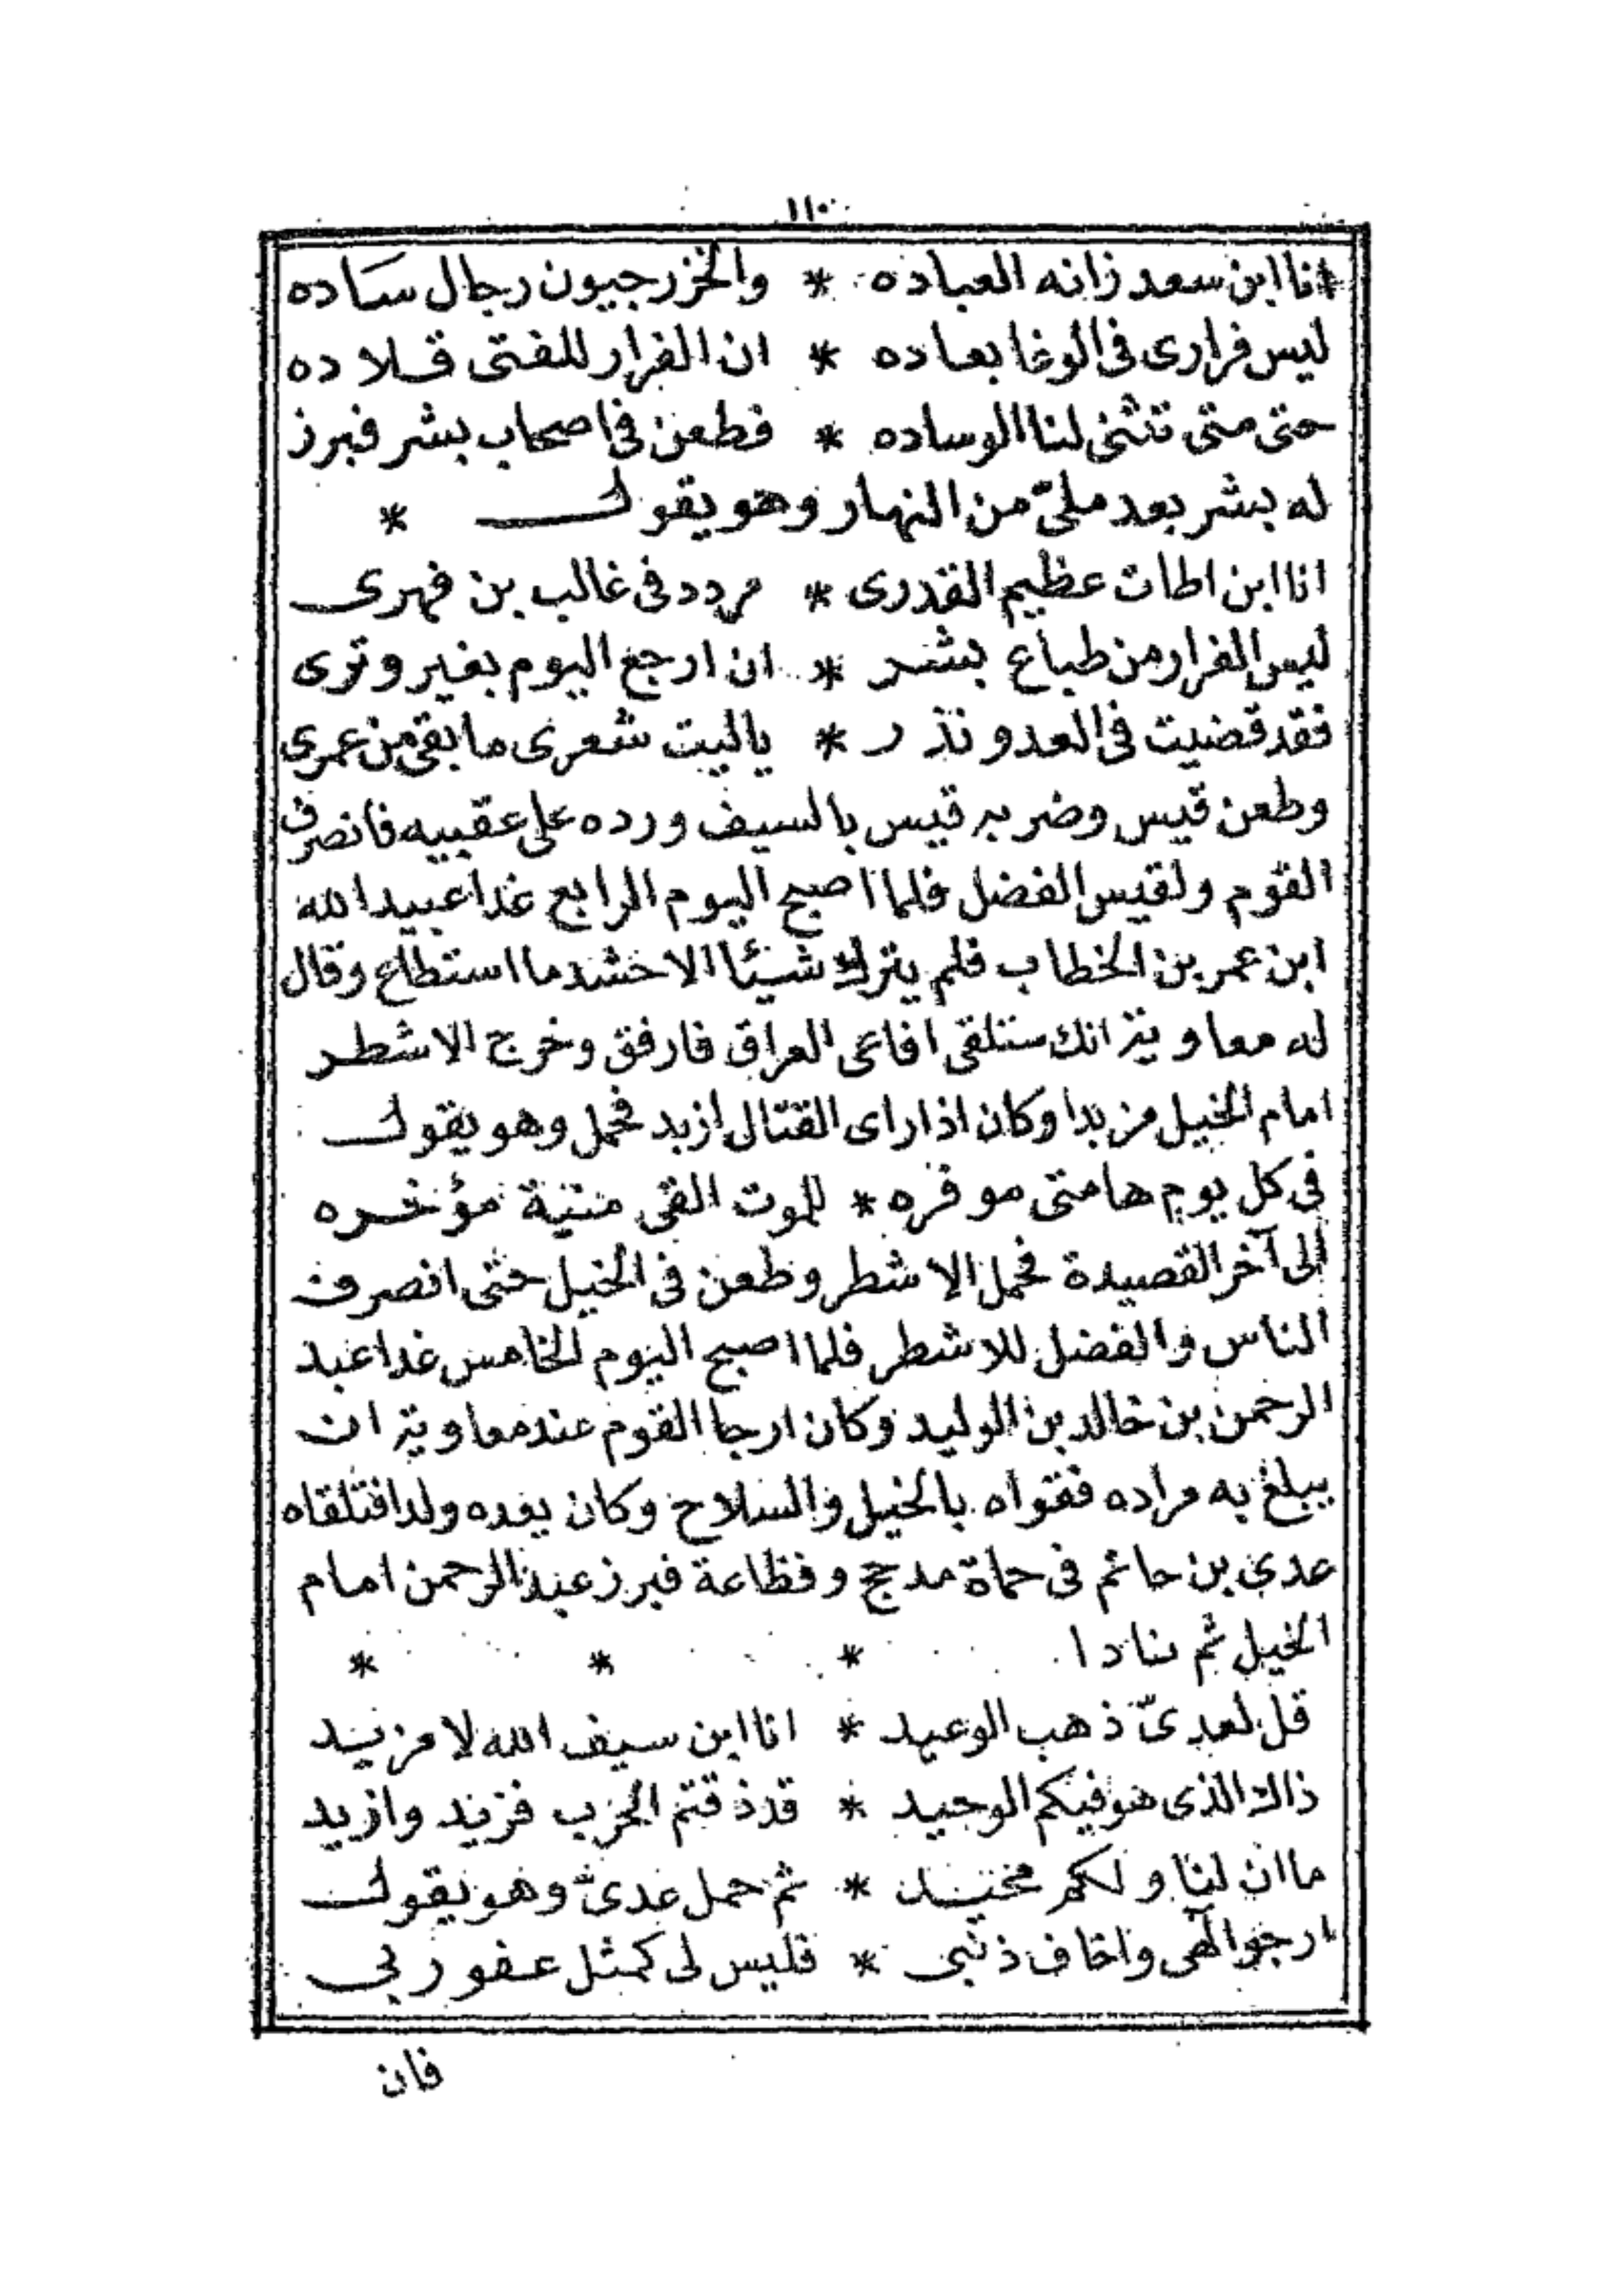 ١١٠
انا ابن سعد زانه العباده * والخزرجيون رجال ساده
ليس فراري في الوغا بعاده * ان الفرار للفتى قلاده
حتى متى تثنى لنا الوساده * فطعن في اصحاب بشر فبرز
له بشر بعد مليّ من النهار وهو يقول *
انا ابن اطات عظيم القدرى * مردد في غالب بن فهرى
ليس الفرار من طباع بشر * ان ارجع اليوم بغير وترى
فقد قضيت في العدو نذر * ياليت شعرى ما بقى من عمري
وطعن قيس وضربه قيس بالسيف ورده على عقبيه فانصرف
القوم ولقيس الفضل فلما اصبح اليوم الرابع غدا عبيد الله
ابن عمر بن الخطاب فلم يترك شيئا الاحشد ما استطاع وقال
له معاوية انك ستلقى افاعى العراق فارفق وخرج الاشطر
امام الخيل مزبدا وكان اذا راى القتال ازبد فحمل وهو يقول
في كل يوم هامتى موفره * للموت القى منية مؤخره
الى آخر القصيدة فحمل الاشطر وطعن في الخيل حتى انصرف
الناس والفضل للاشطر فلما اصبح اليوم الخامس غدا عبد
الرحمن بن خالد بن الوليد وكان ارجا القوم عند معاوية ان
يبلغ به مراده فقواه بالخيل والسلاح وكان يعده ولدا فتلقاه
عدي بن حاتم في حماة مدحج وفظاعة فبرز عبد الرحمن امام
الخيل ثم نادا * * *
قل لعدىّ ذهب الوعيد * انا ابن سيف الله لا مزيد
ذاك الذى هو فيكم الوحيد * قد ذقتم الحرب فزيد وازيد
ما ان لنا ولكم محيد * ثم حمل عدىّ وهو يقول
ارجو الهى واخاف ذنبى * فليس لى كمثل عفو ربى
فان